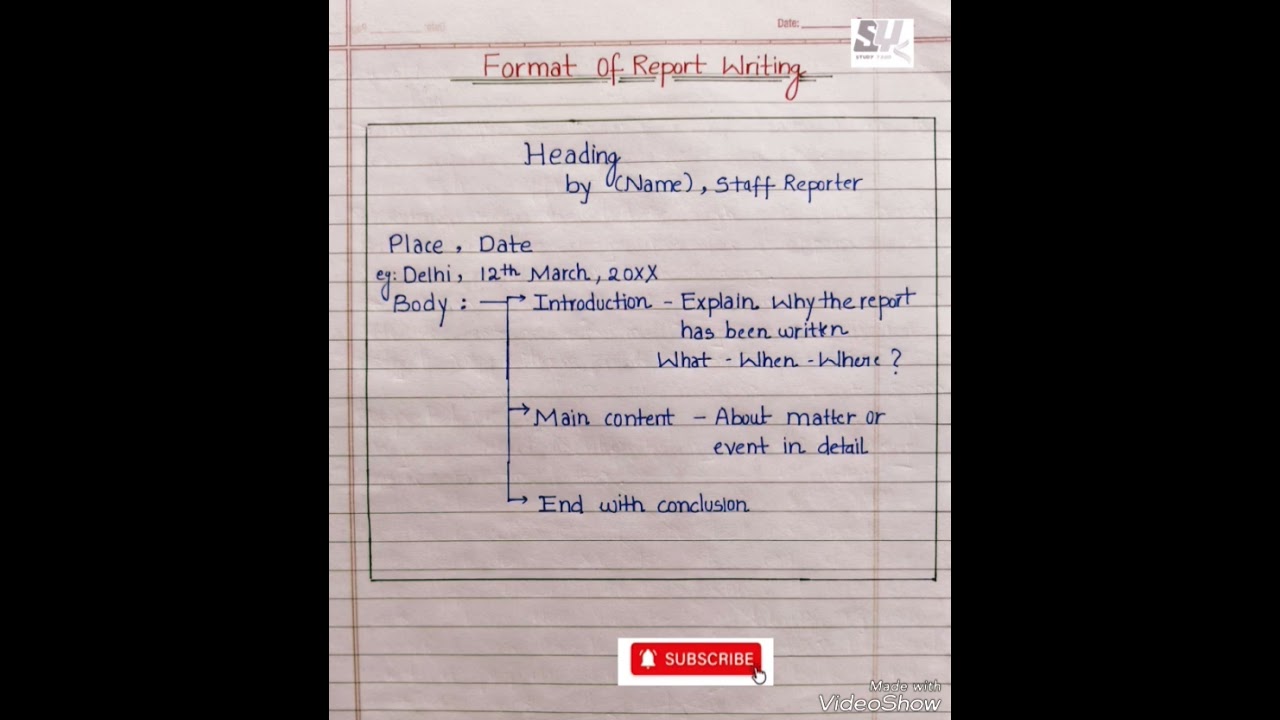 Date:
SY
STUDY YARD
Format Of Report Writing
Heading
by (Name), Staff Reporter
Place, Date
eg: Delhi, 12th March, 20XX
Body : Introduction - Explain Why the report
has been written
What - When - Where ?
Main content - About matter or
event in detail
End with conclusion
SUBSCRIBE
Made with
VideoShow